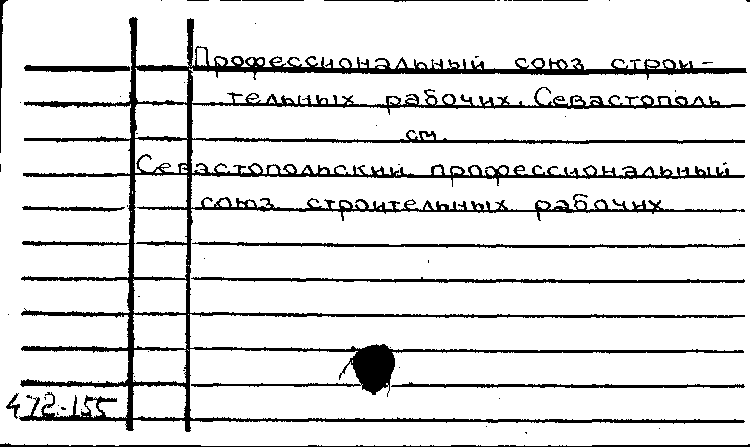 Профессиональный союз строи-
тельных рабочих. Севастополь
см.
Севастопольский профессиональный
союз строительных рабочих
472-155